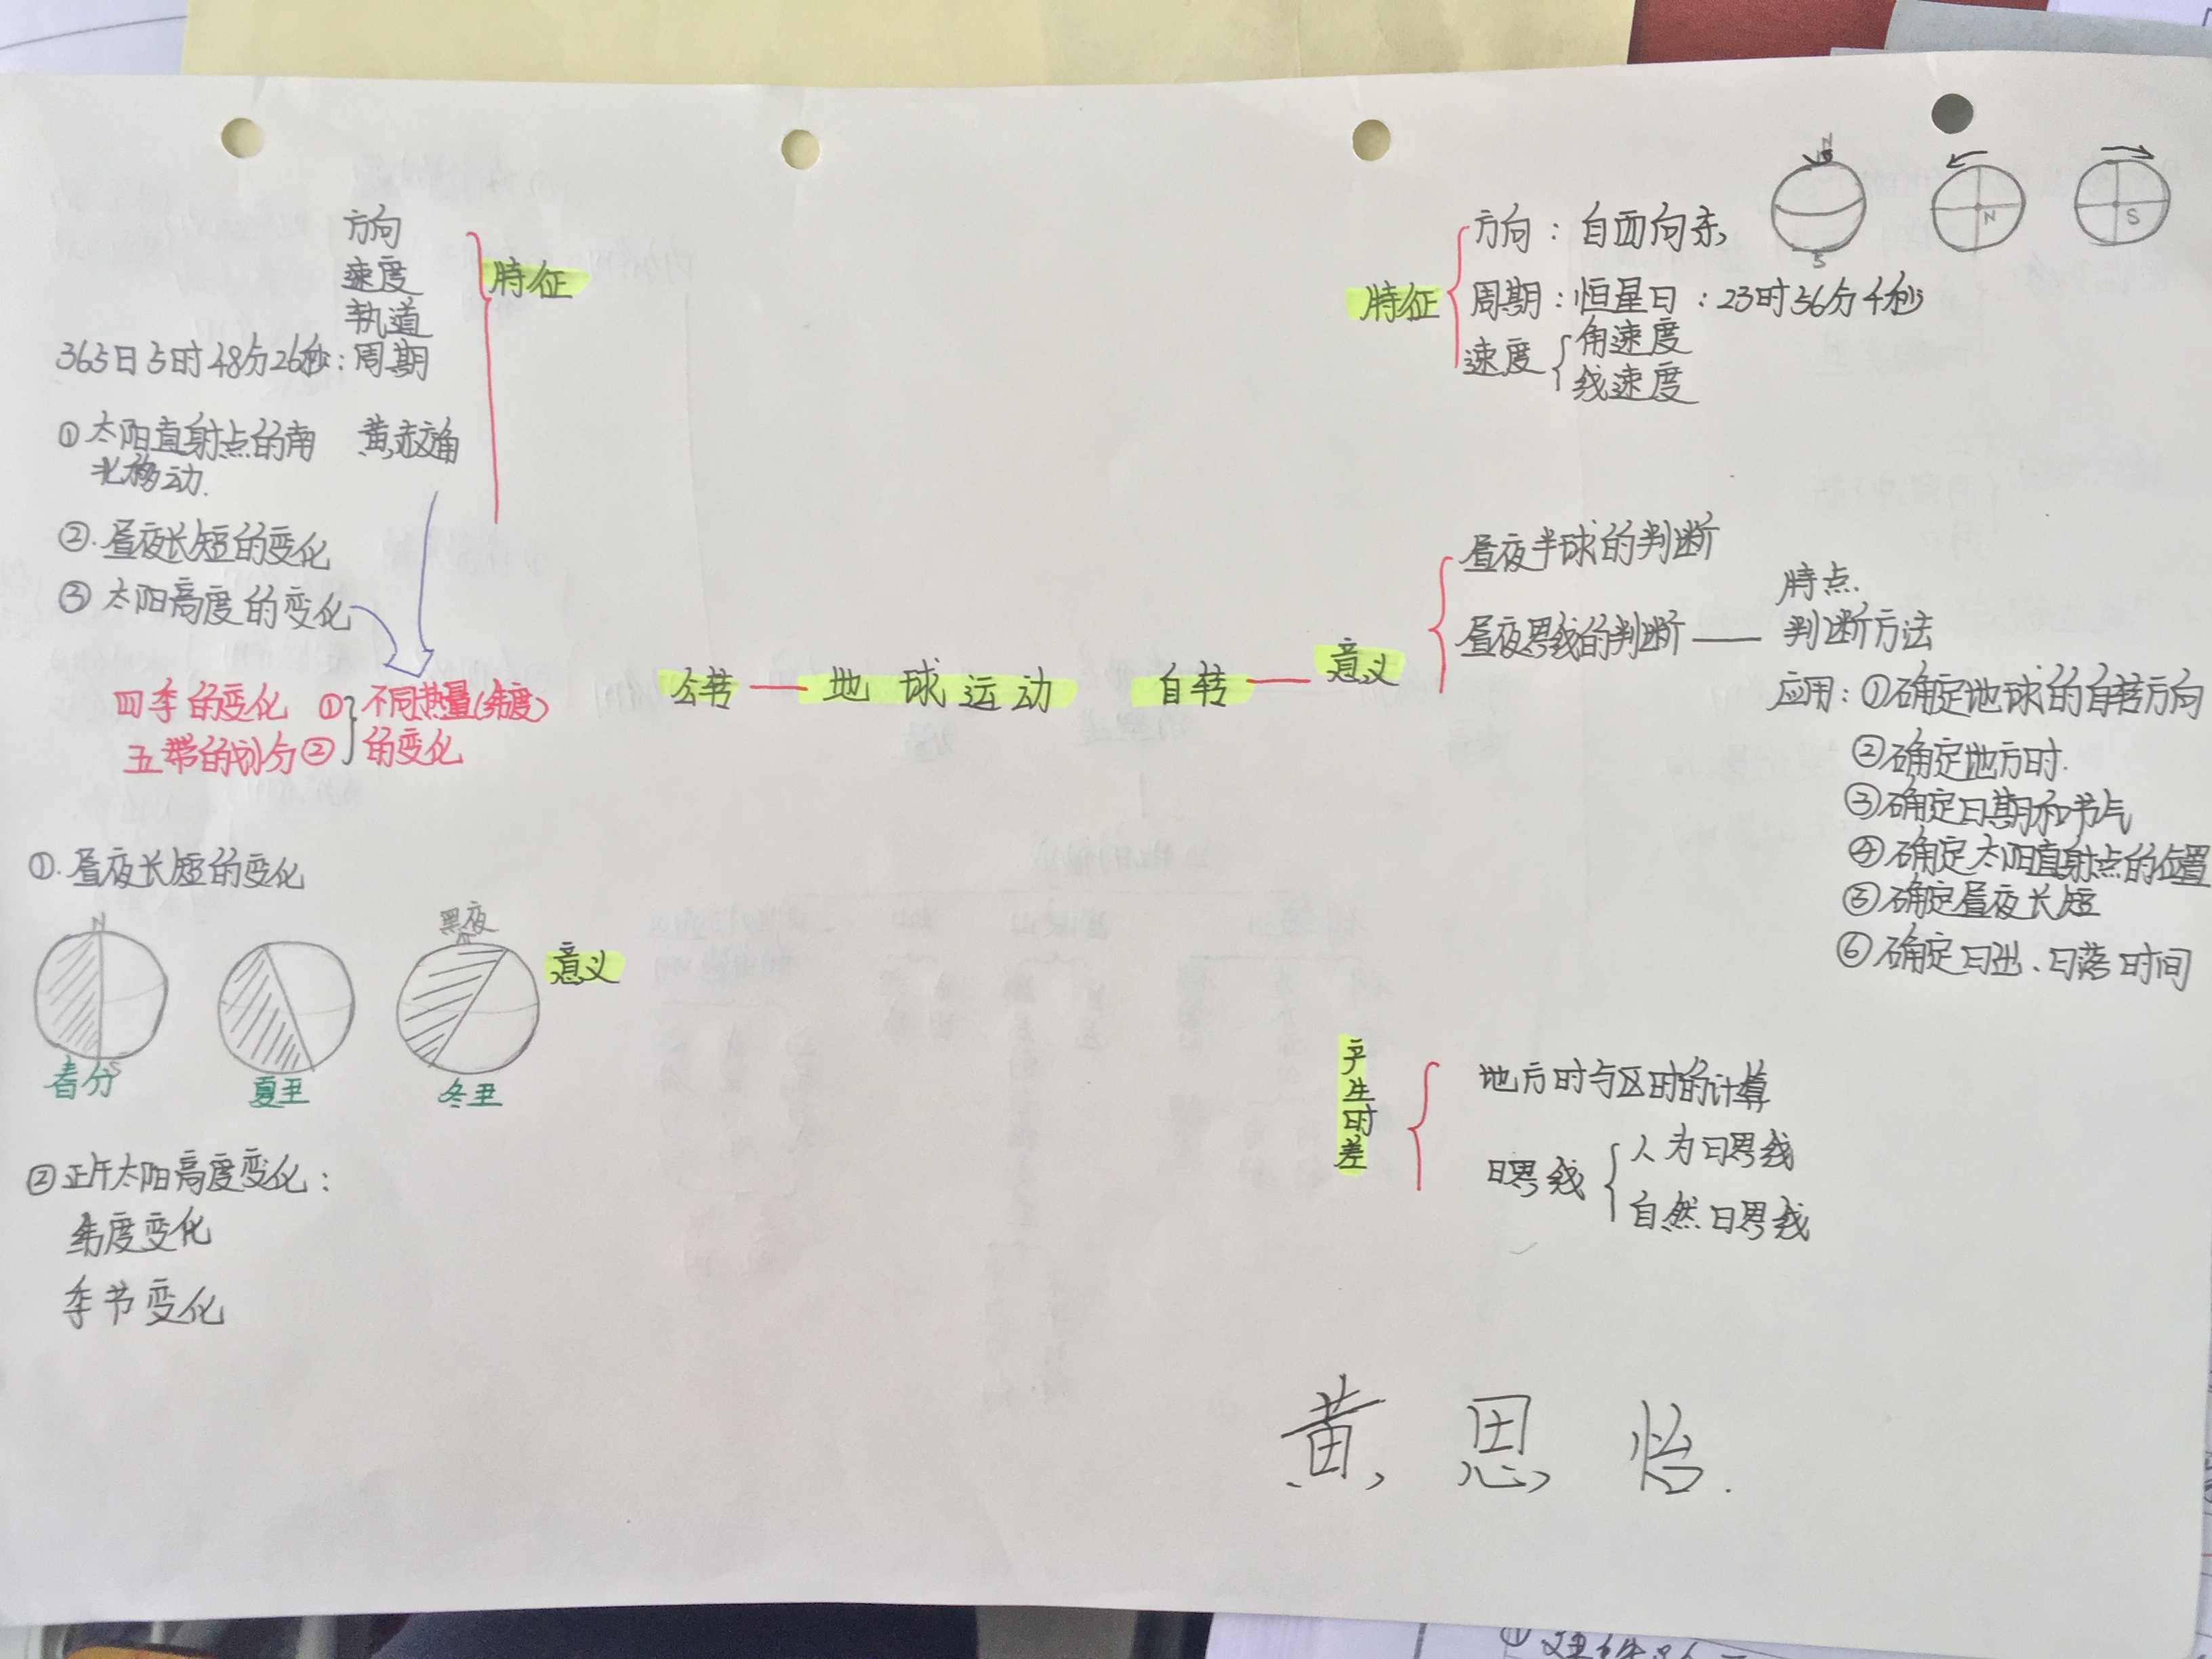 方向
速度
轨道
365日5时48分26秒:周期
特征
①太阳直射点的南
北移动.
黄赤交角
②.昼夜长短的变化
③太阳高度的变化
四季的变化 ①
五带的划分②
不同热量(纬度)
的变化
①.昼夜长短的变化
N
S
春分
夏至
黑夜
冬至
意义
②正午太阳高度变化:
纬度变化
季节变化
公转 地球运动 自转 意义
特征
方向:自西向东
周期:恒星日:23时56分4秒
速度
角速度
线速度
N
S
N
S
昼夜半球的判断
昼夜界线的判断
特点.
判断方法
应用:①确定地球的自转方向
②确定地方时.
③确定日期和节气
④确定太阳直射点的位置
⑤确定昼夜长短
⑥确定日出、日落时间
产生时差
地方时与区时的计算
日界线
人为日界线
自然日界线
黄思怡.